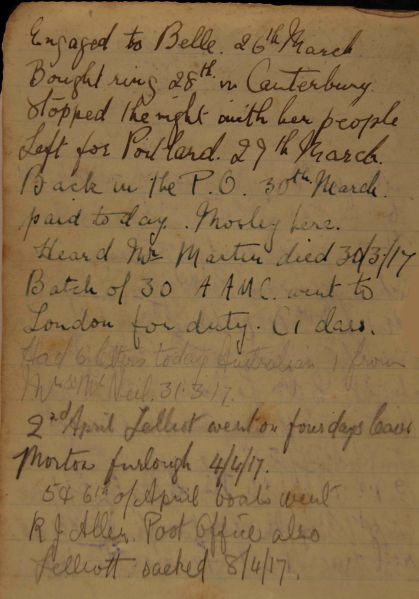 Engaged to Belle. 26th March
Bought ring 28th in Canterbury.
Stopped the night with her people
Left for Portland. 29th March.
Back in the P.O. 30th March.
paid to day. Mosley here.
Heard Mr Martin died 30/3/17
Batch of 30 A A M C. went to
London for duty. C1 class.
Had 6 letters today Australian 1 from
Mrs Mc Neil. 31.3.17.
2nd April Lelliot went on four days leave
Morton furlough 4/4/17.
5 & 6th of April boats went
R J Allen. Post Office also
Lelliott sacked 8/4/17.